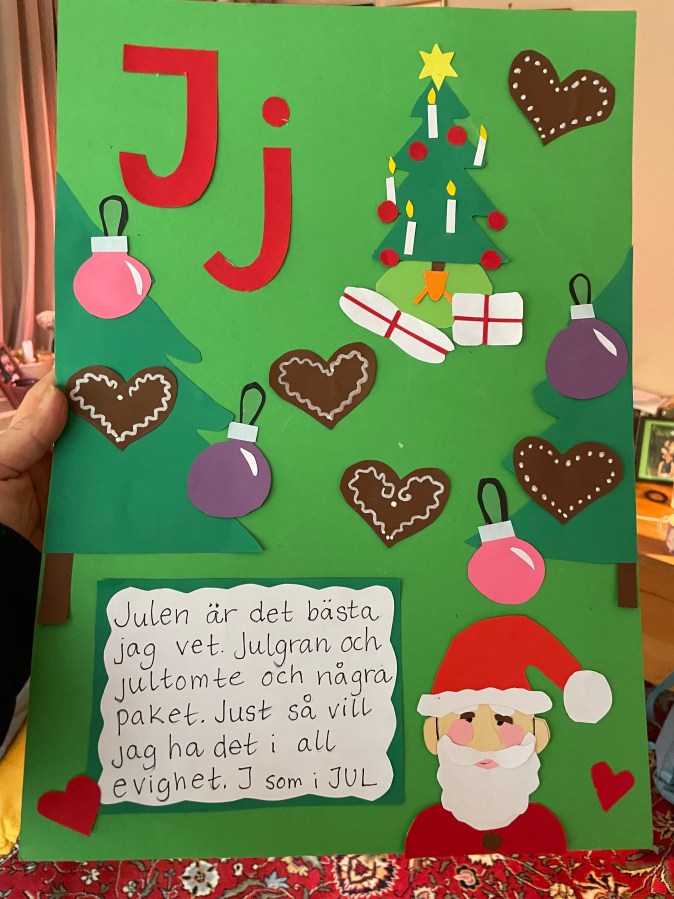 J j
Julen är det bästa
jag vet. Julgran och
jultomte och några
paket. Just så vill
jag ha det i all
evighet. J som i JUL